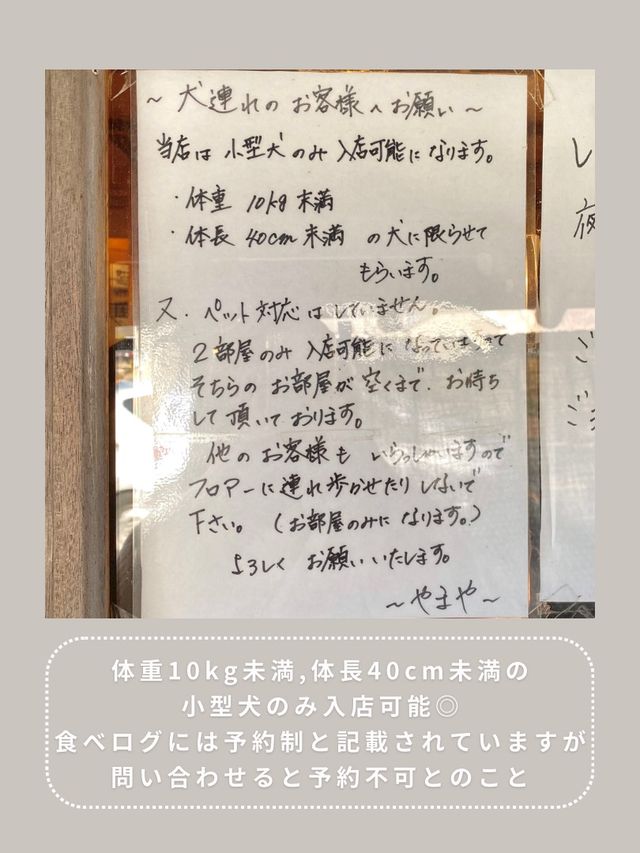 ～犬連れのお客様へお願い～
当店は小型犬のみ入店可能になります。
・体重 10kg 未満
・体長 40cm 未満 の犬に限らせて
もらいます。
又、ペット対応はしていません。
2部屋のみ入店可能になっていますので
そちらのお部屋が空くまで、お待ち
して頂いております。
他のお客様もいらっしゃいますので
フロアーに連れ歩かせたりしないで
下さい。（お部屋のみになります。）
よろしくお願いいたします。
～やまや～
し
夜
ご
体重10kg未満,体長40cm未満の
小型犬のみ入店可能◎
食べログには予約制と記載されていますが
問い合わせると予約不可とのこと